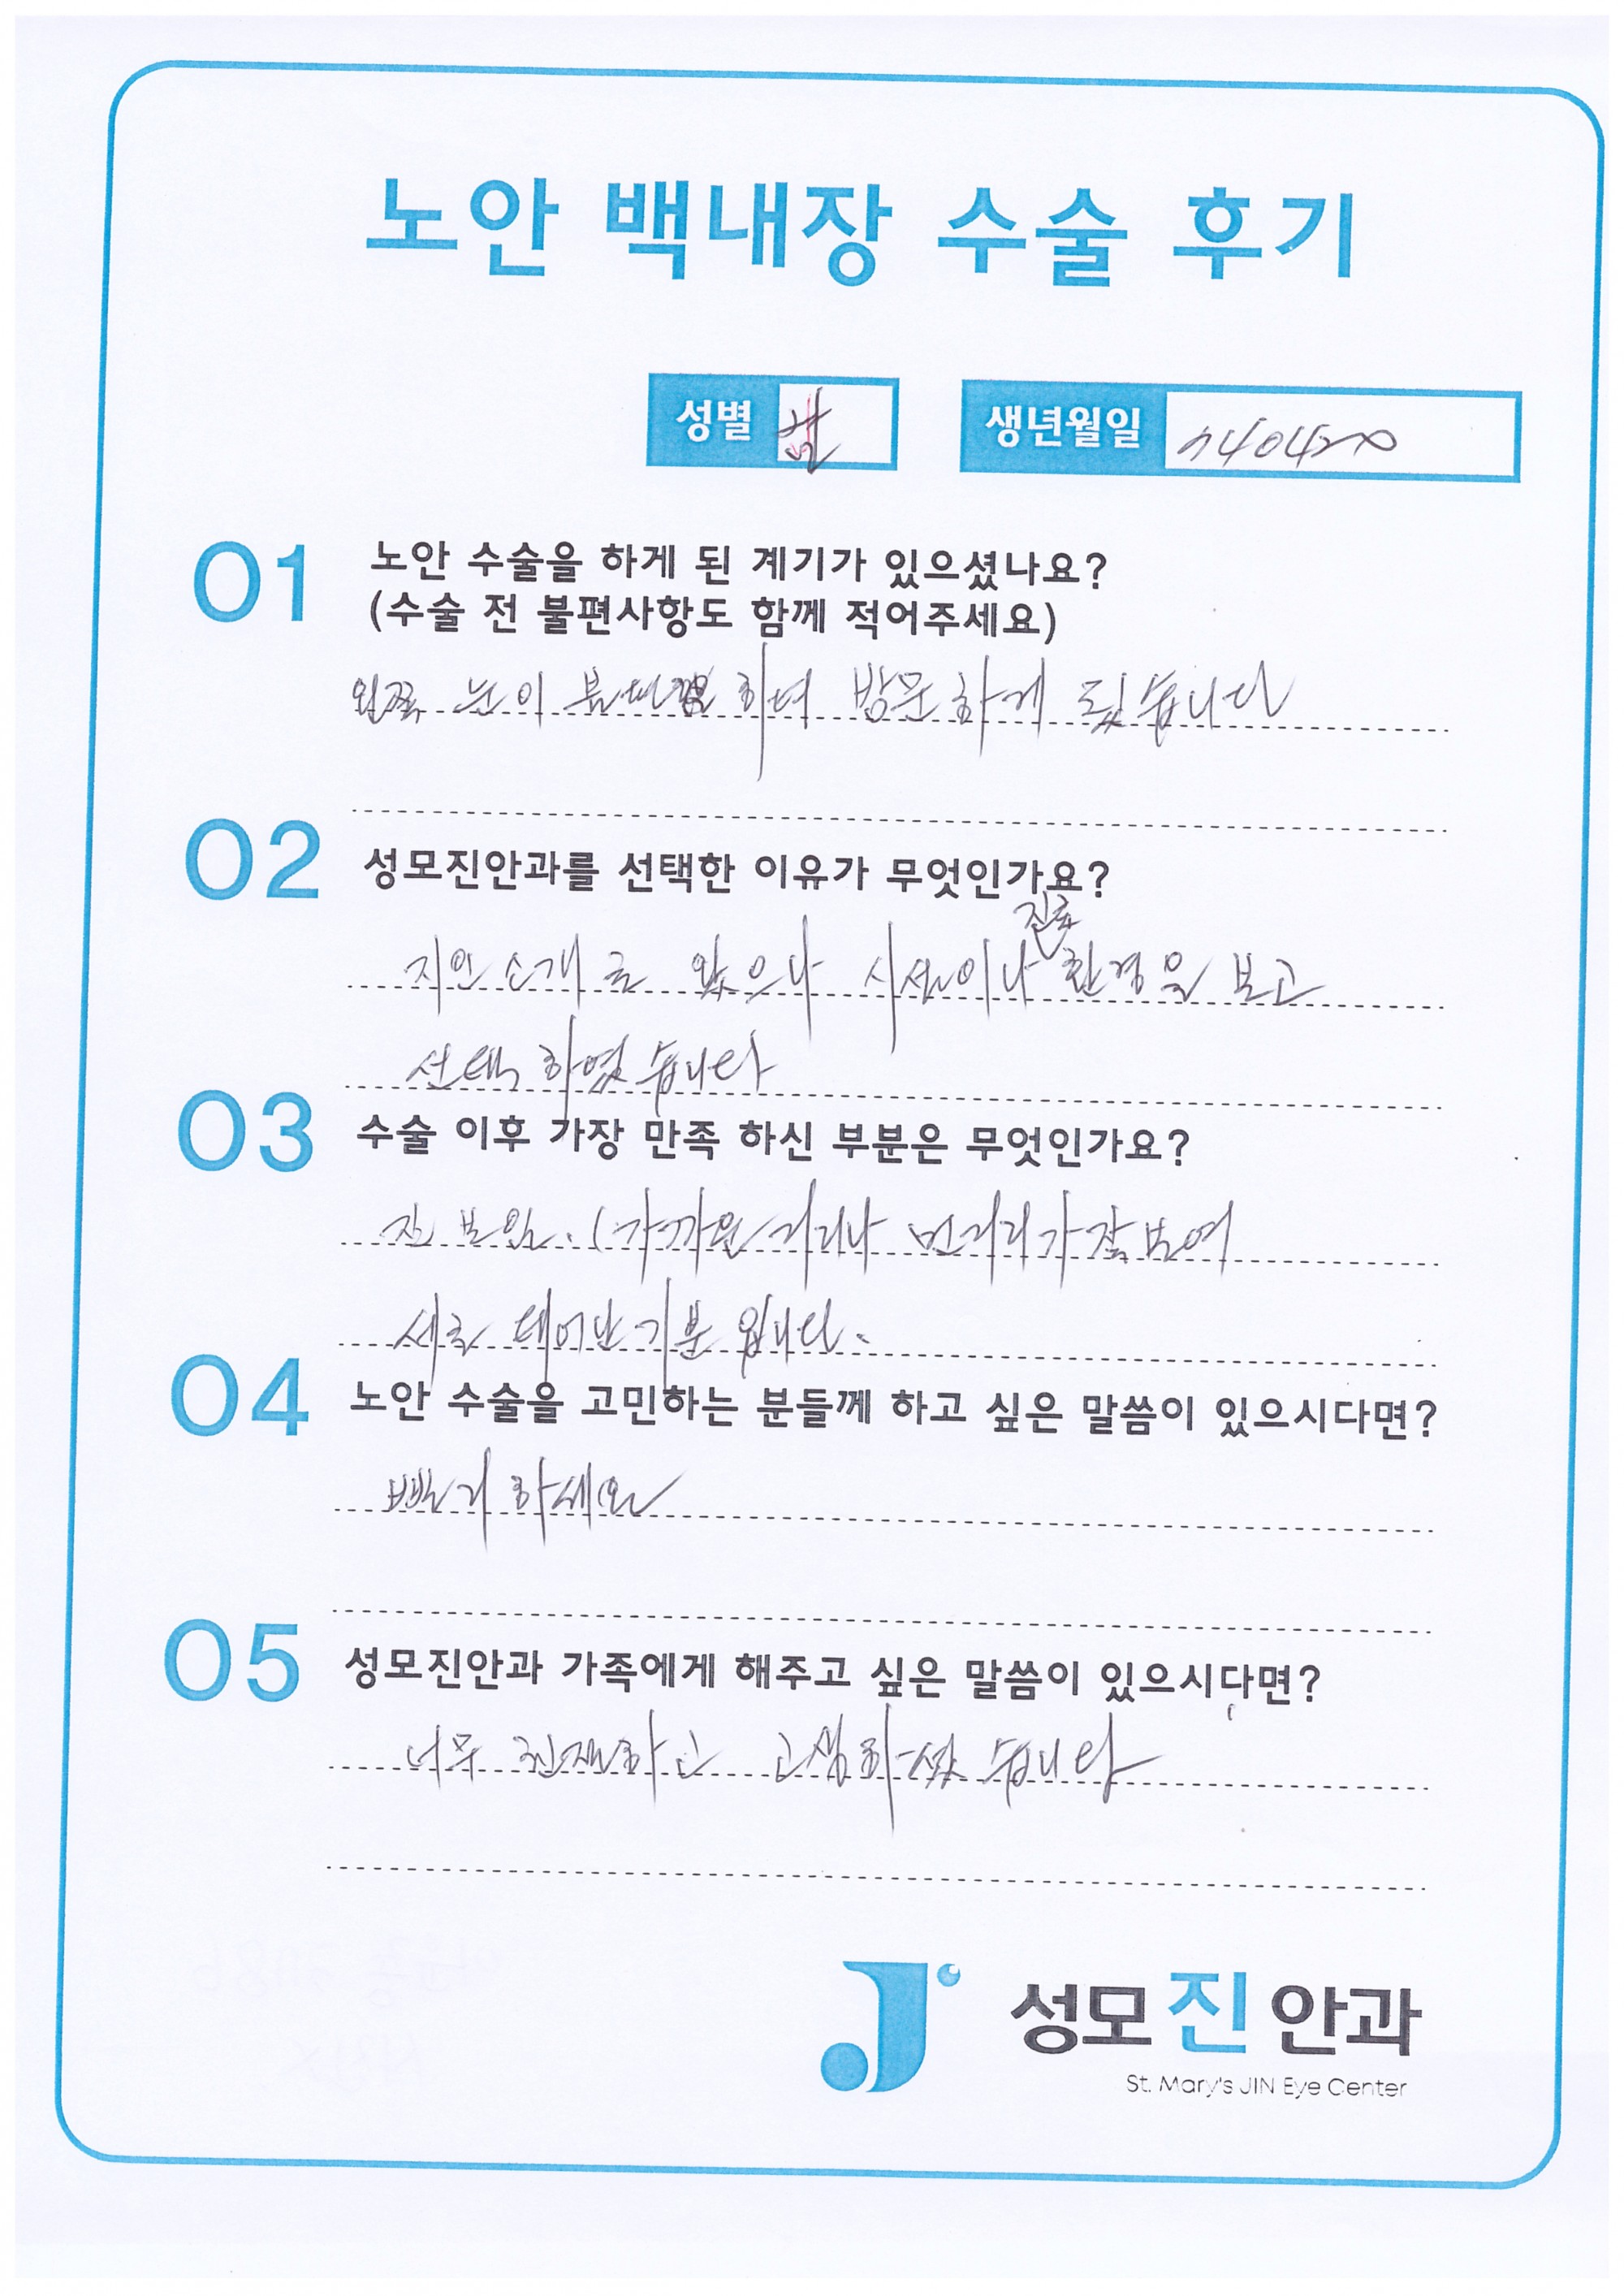 노안 백내장 수술 후기
성별 남 생년월일
01 노안 수술을 하게 된 계기가 있으셨나요?
(수술 전 불편사항도 함께 적어주세요)
왼쪽 눈이 하여 방문하게 됬습니다
02 성모진안과를 선택한 이유가 무엇인가요?
진료
지인소개로 왔으나 시설이나 환경을 보고
선택하였습니다
03 수술 이후 가장 만족 하신 부분은 무엇인가요?
잘 보임. (가까운거리나 먼거리가 잘보여
새로 태어난 기분 입니다.
04 노안 수술을 고민하는 분들께 하고 싶은 말씀이 있으시다면?
빨리 하세요
05 성모진안과 가족에게 해주고 싶은 말씀이 있으시다면?
너무 친절하고 고생하셨습니다
성모진안과
St. Mary's JIN Eye Center